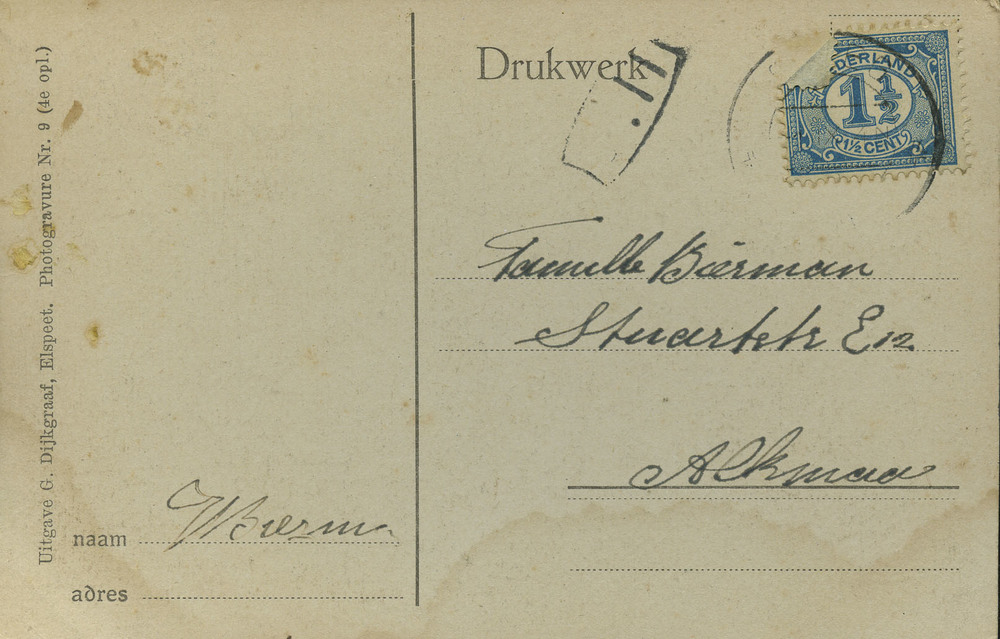 Uitgave G. Dijkgraaf, Elspeet. Photogravure Nr. 9 (4e opl.)
Drukwerk
NEDERLAND
1½
1½ CENT
Familie Bierman
Stuartstr E12
Alkmaa
naam
adres